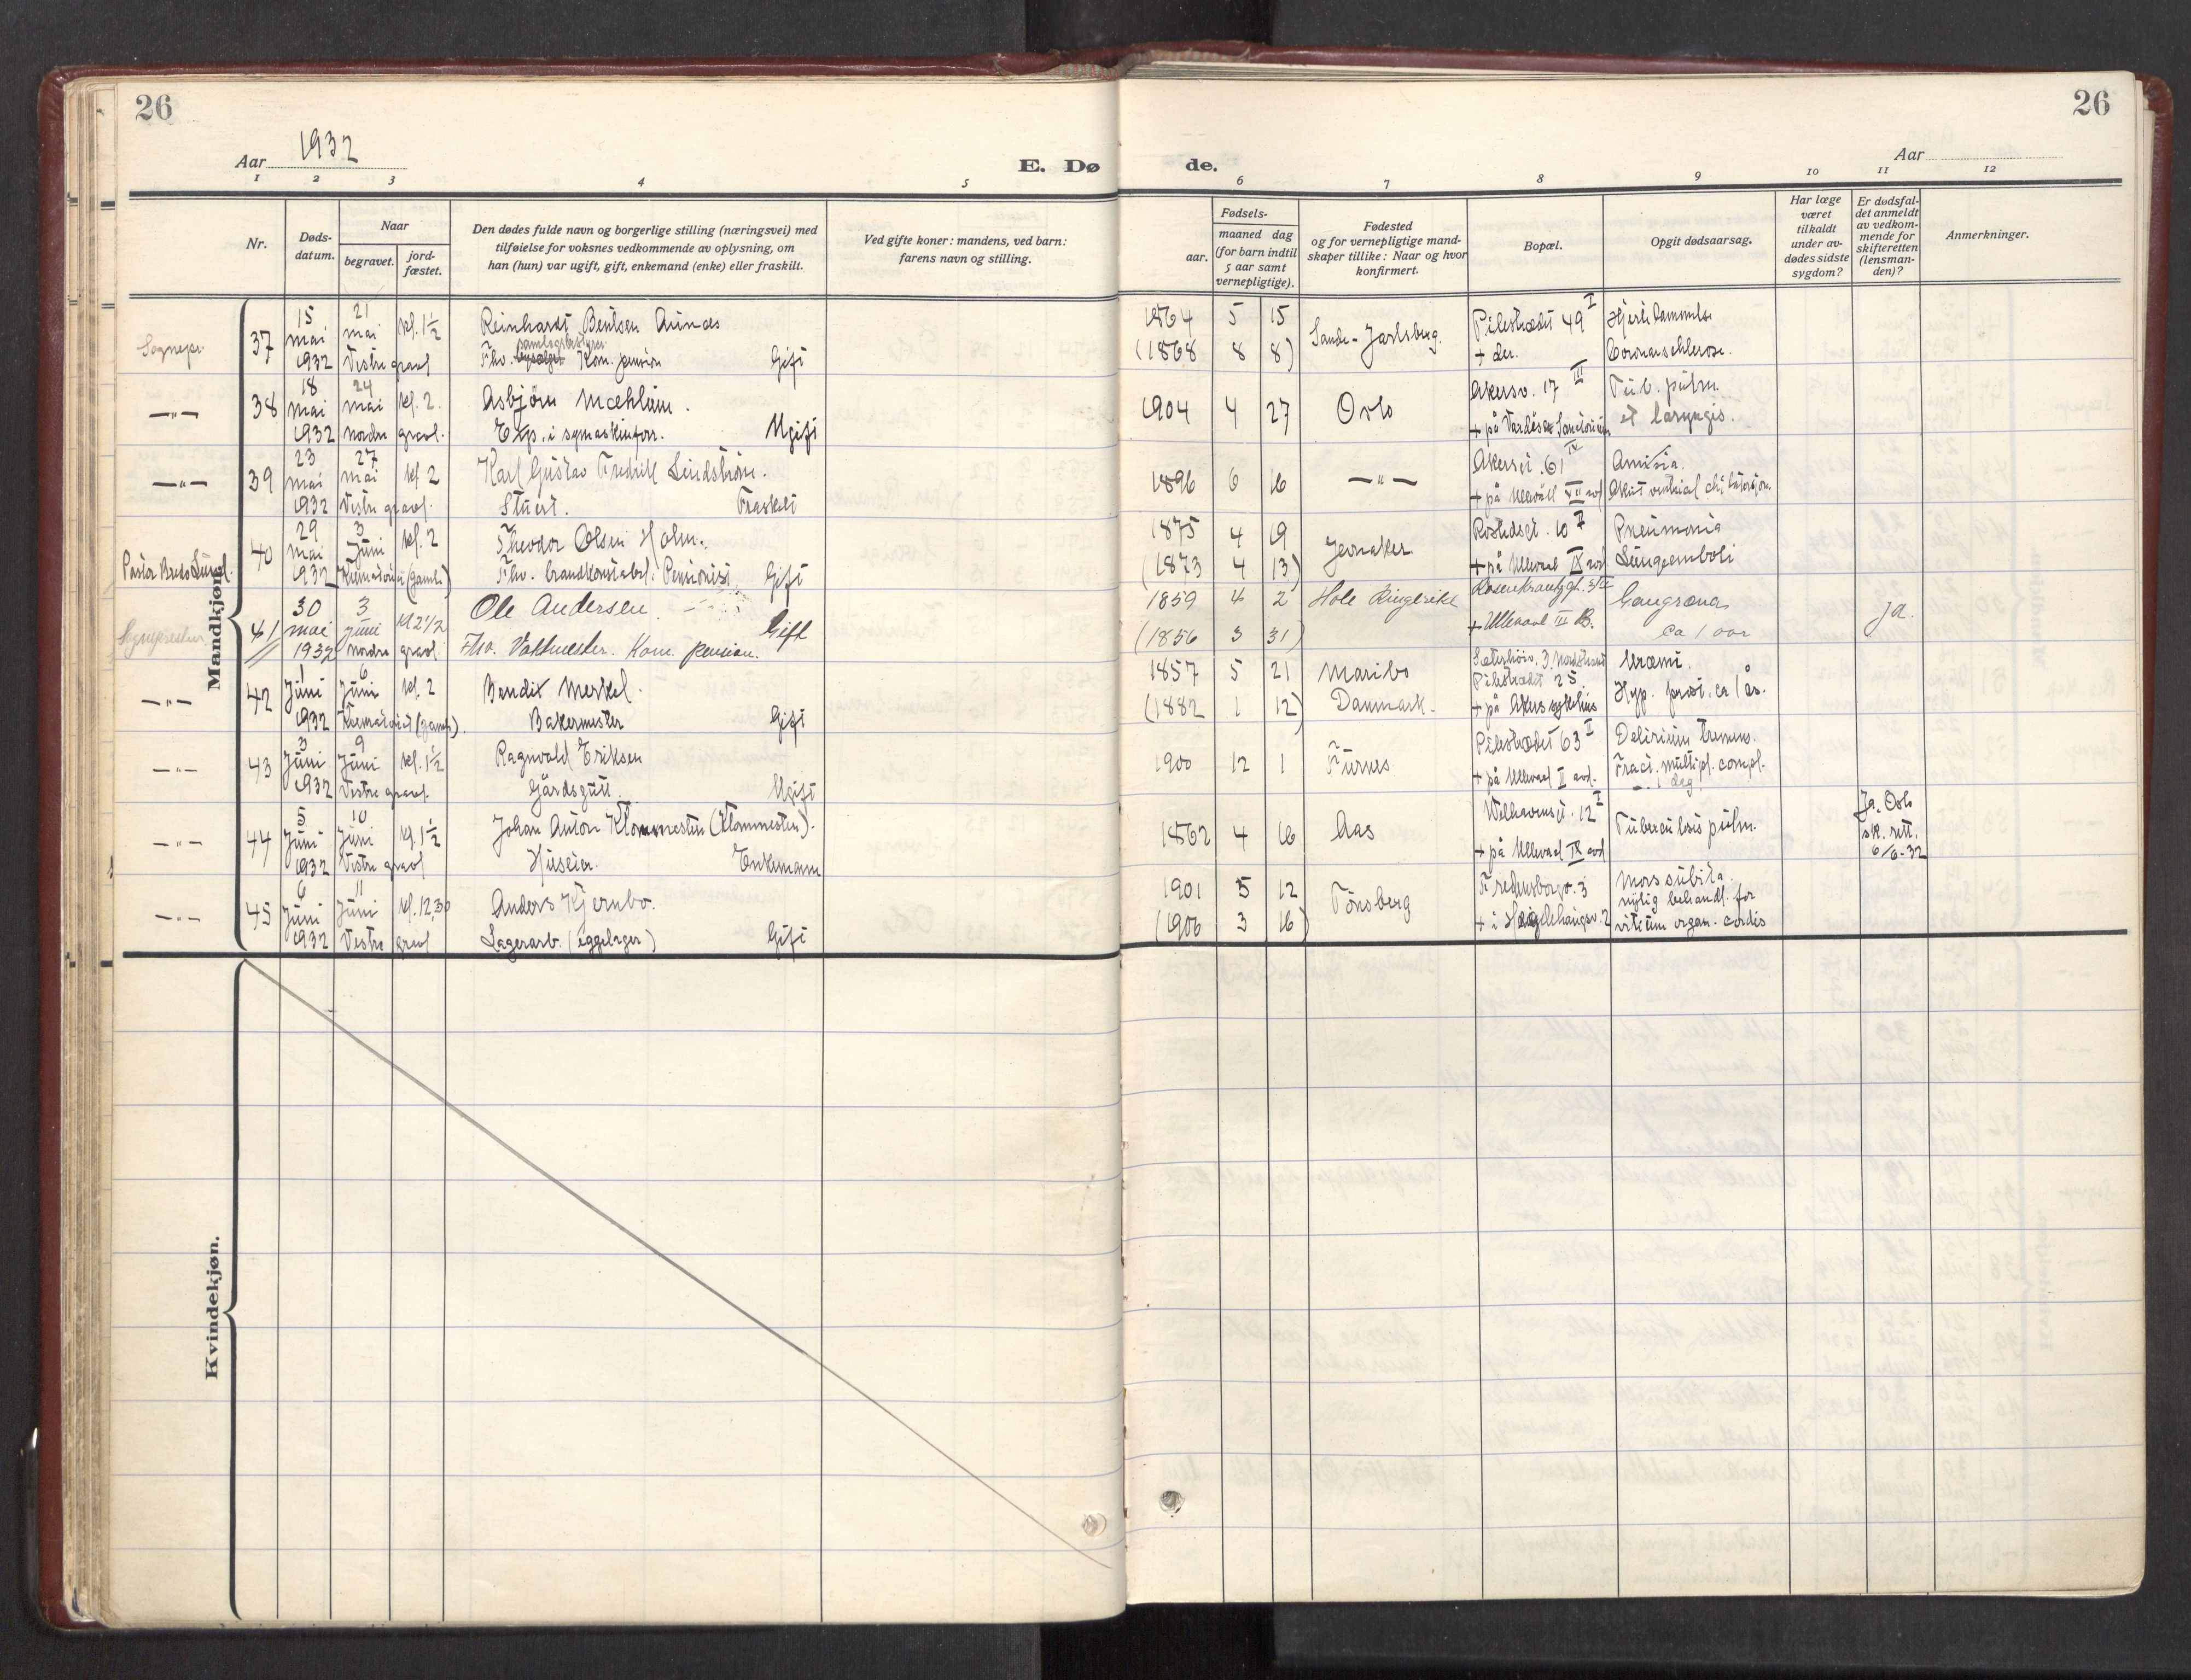 26
Aar 1932
E. Dø
1 2 3 4 5
Nr.
Døds-
datum.
Naar
begravet.
jord-
fæstet.
Den dødes fulde navn og borgerlige stilling (næringsvei) med
tilføielse for voksnes vedkommende av oplysning, om
han (hun) var ugift, gift, enkemand (enke) eller fraskilt.
Ved gifte koner: mandens, ved barn:
farens navn og stilling.
Mandkjøn.
Sognepr.
37
15 mai 1932
21 mai
Vestre gravl
kl. 1 1/2
Reinhardt Bentsen Aunes
Fhv. samlagsbestyrer Kom. pension Gift
—„—
38
18 mai 1932
24 mai
Nordre gravl.
kl. 2.
Asbjørn Mæhlum.
Exp. i symaskinforr. Ugift
—„—
39
23 mai 1932
27 mai
Vestre gravl.
kl 2
Karl Gustav Fredrik Lindstrøm.
Stuert. Fraskilt
Pastor Bredo Lund.
40
29 mai 1932
3 Juni
Krematoriet (gamle)
kl. 2
Theodor Olsen Holm.
Fhv. brandkonstabel. Pensionist Gift
Sognepresten
41
30 mai 1932
3 juni
nordre gravl.
kl 2 1/2
Ole Andersen
Fhv. Vaktmester. Kom. pension. Gift
—„—
42
1 Juni 1932
6 Juni
Krematoriet (gamle).
kl. 2
Bendix Merkel.
Bakermester Gift
—„—
43
3 Juni 1932
9 Juni
Vestre gravl.
kl. 1 1/2
Ragnvald Eriksen
Gårdsgutt. Ugift
—„—
44
5 Juni 1932
10 Juni
Vestre gravl
kl. 1 1/2
Johan Anton Klommesten (Klommesten).
Huseier. Enkemann
—„—
45
6 Juni 1932
11 Juni
Vestre gravl
kl. 12,30
Anders Kjernbo.
Lagerarb. (eggelager) Gift
Kvindekjøn.
26
Aar
de.
6 7 8 9 10 11 12
Fødsels-
aar.
maaned dag
(for barn indtil
5 aar samt
vernepligtige).
Fødested
og for vernepligtige mand-
skaper tillike: Naar og hvor
konfirmert.
Bopæl.
Opgit dødsaarsag.
Har læge
været
tilkaldt
under av-
dødes sidste
sygdom?
Er dødsfal-
det anmeldt
av vedkom-
mende for
skifteretten
(lensman-
den)?
Anmerkninger.
1864 5 15
(1868 8 8)
Sande - Jarlsberg.
Pilestrædet 49 I
+ der.
Hjertelammelse
Coronarsclerose.
1904 4 27
Oslo
Akersv. 17 III
+ på Vardåsen Sanatorium
Tub. pulm.
et laryngis.
1896 6 16
—„—
Akersgt. 61 IV
+ på Ullevål VII avd
1875 4 19
(1873 4 13)
Jevnaker
Rostedsgt. 10 I
+ på Ullevaal IX avd
Pneumonia
Lungeemboli
1859 4 2
(1856 3 31)
Hole Ringerike
Rosenkrantzgt. 3 III
+ Ullevaal III B.
Gangræna
ca 1 aar
ja.
1857 5 21
(1882 1 12)
Maribo
Danmark.
Sæterhøiv. 3. Nordstrand
Pilestrædet 25.
+ på Akers sykehus
Uræmi.
Hyp. prost. ca 1 år.
1900 12 1
Furnes
Pilestrædet 63 I
+ på Ullevaal II avd.
Delirium tremens.
Fract. multipl. compl.
1 dag
1862 4 16
Aas
Welhavensgt. 12 I
+ på Ullevaal IX avd
Tuberculosis pulm.
Ja. Oslo
sk. rett.
6/6-32
1901 5 12
(1906 3 16)
Tønsberg
Fredensborgv. 3
Mors subita.
nylig behandl. for
vitium organ. cordis